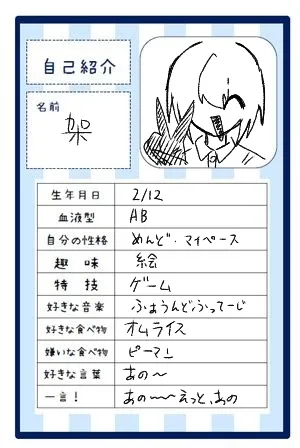 自己紹介
名前
架
生年月日 2/12
血液型 AB
自分の性格 めんど・マイペース
趣味 絵
特技 ゲーム
好きな音楽 ふぉんどふってーじ
好きな食べ物 オムライス
嫌いな食べ物 ピーマン
好きな言葉 あの〜
一言! あの〜〜えっと、あの